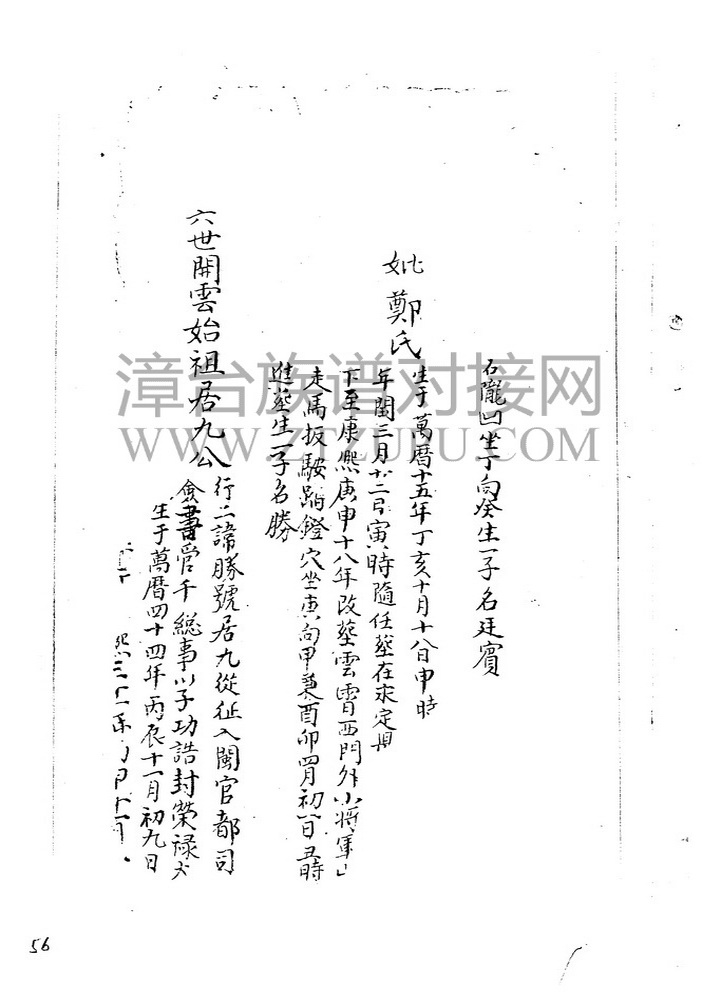 石隴凹坐丁向癸生一子名廷賓
妣鄭氏生于萬曆十五年丁亥十月十八日申時
年閏三月廿二日寅時隨任塟在永定
下至康熙庚申十八年改塟雲霄西門外小將軍山
走馬扳鞍踏鐙穴坐庚向甲兼酉卯四月初八日丑時
進塟生一子名勝
六世開雲始祖居九公行二諱勝號居九從征入閩官都司
僉書管千總事以子功誥封榮祿大
生于萬曆四十四年丙辰十一月初九日
漳台族谱对接网
WWW.ZTZUPU.COM
56